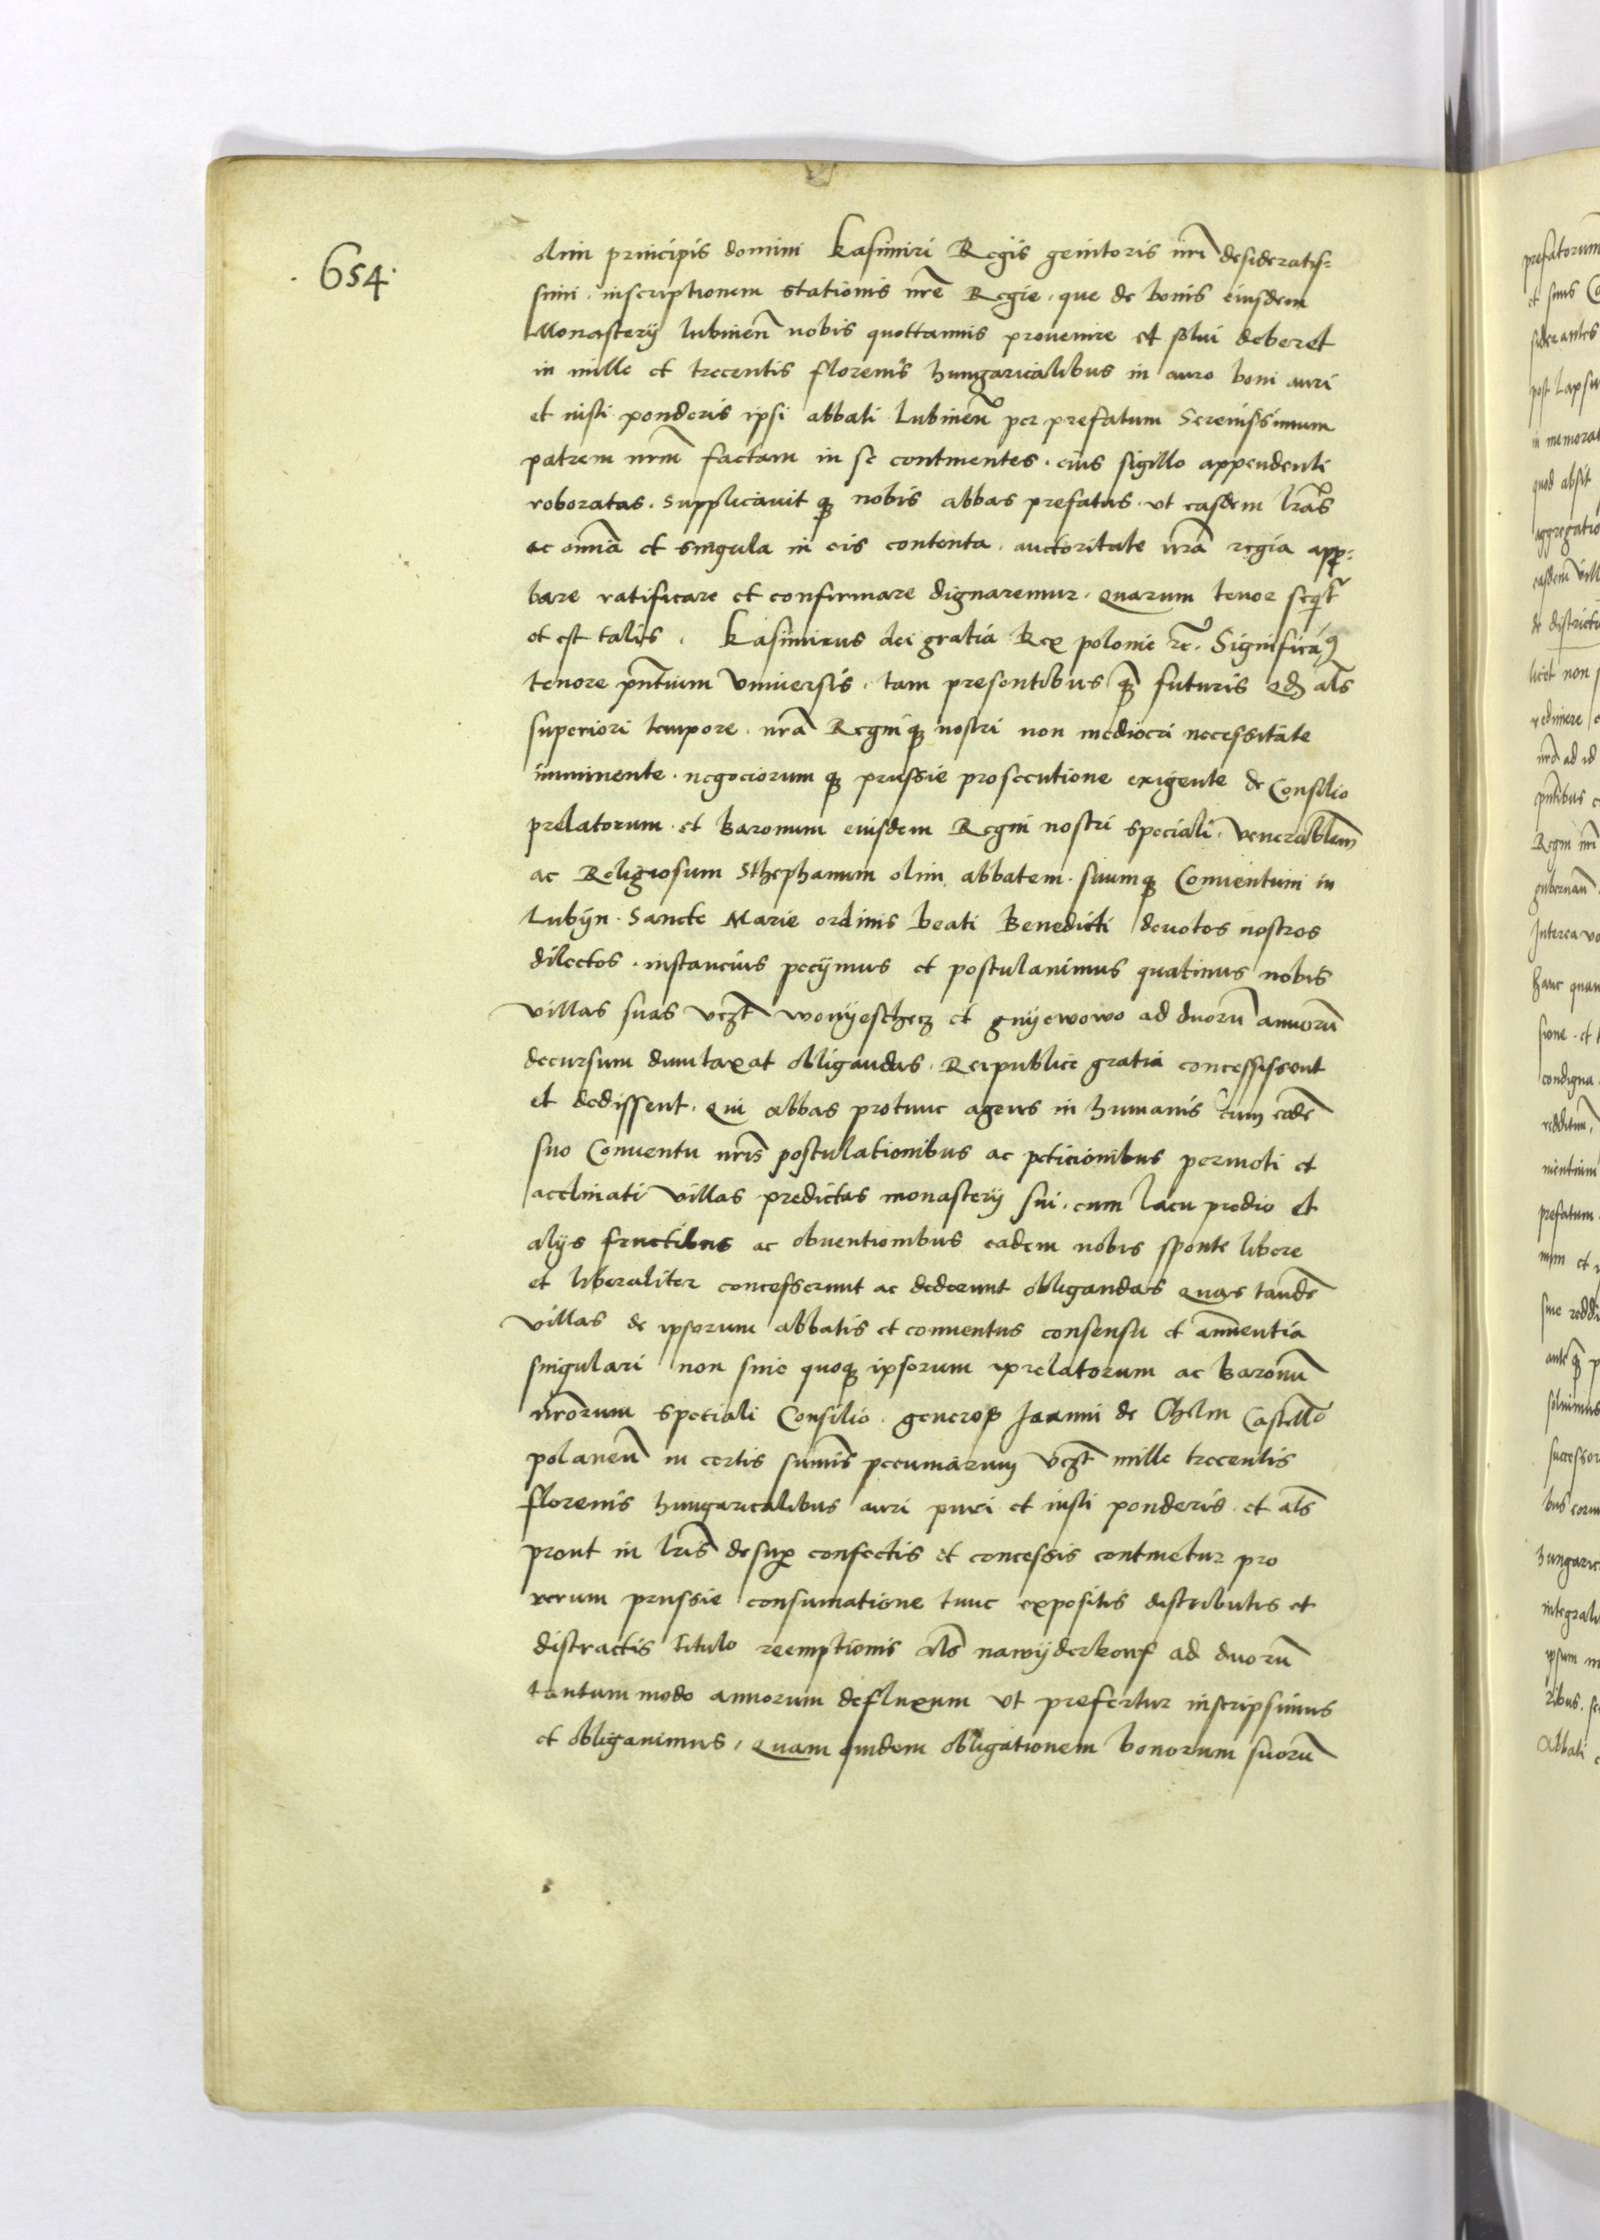 . 654 .
olim principis domini Kasimiri Regis genitoris nri desideratis-
simi . inscriptionem stationis nre Regie . que de bonis eiusdem
Monasterij lubinen nobis quottannis prouenire et solui deberet
in mille et trecentis florenis hungaricalibus in auro boni auri
et iusti ponderis ipsi abbati Lubinen per prefatum Serenissimum
patrem nrm factam in se continentes . eius sigillo appendenti
roboratas . Supplicauit q nobis abbas prefatus . vt easdem lras
ac omnia et singula in eis contenta . auctoritate nra regia appro-
bare ratificare et confirmare dignaremur . Quarum tenor seqt
et est talis . Kasimirus dei gratia Rex polonie rc . Significam9
tenore pntium Vniuersis . tam presentibus q futuris qd als
superiori tempore . nra Regniq nostri non mediocri necessitate
imminente . negociorum q prussie prosecutione exigente de Consilio
prelatorum . et Baronum eiusdem Regni nostri speciali . Venerabilem
ac Religiosum Sthephanum olim abbatem . suumq Conuentum in
Lubijn . Sancte Marie ordinis beati Benedicti deuotos nostros
dilectos . instancius pecijmus et postulauimus quatinus nobis
Villas suas vczt wonyeschecz et gnyewowo ad duoru annoru
decursum dumtaxat obligandas . Reipublice gratia concessissent
et dedissent . Qui abbas protunc agens in humanis cum eode
suo Conuentu nris postulationibus ac peticionibus permoti et
acclinati Villas predictas monasterij sui . cum lacu predio et
alijs fructibus ac obuentionibus eadem nobis sponte libere
et liberaliter concesserunt ac dederunt obligandas Quas tande
Villas de ipsorum abbatis et conuentus consensu et annuentia
singulari non sine quoq ipsorum prelatorum ac Baronu
nrorum speciali Consilio . generoso Joanni de Chelm Castello
polanen in certis sumis pecuniarum Vczt mille trecentis
florenis hungaricalibus auri puri et iusti ponderis . et als
prout in lris desup confectis et concessis continetur pro
rerum prussie consumatione tunc expositis distributis et
distractis titulo reemptionis als nawyderkowf ad duoru
tantummodo annorum defluxum vt prefertur inscripsimus
et obligauimus , Quam quidem obligationem bonorum suoru